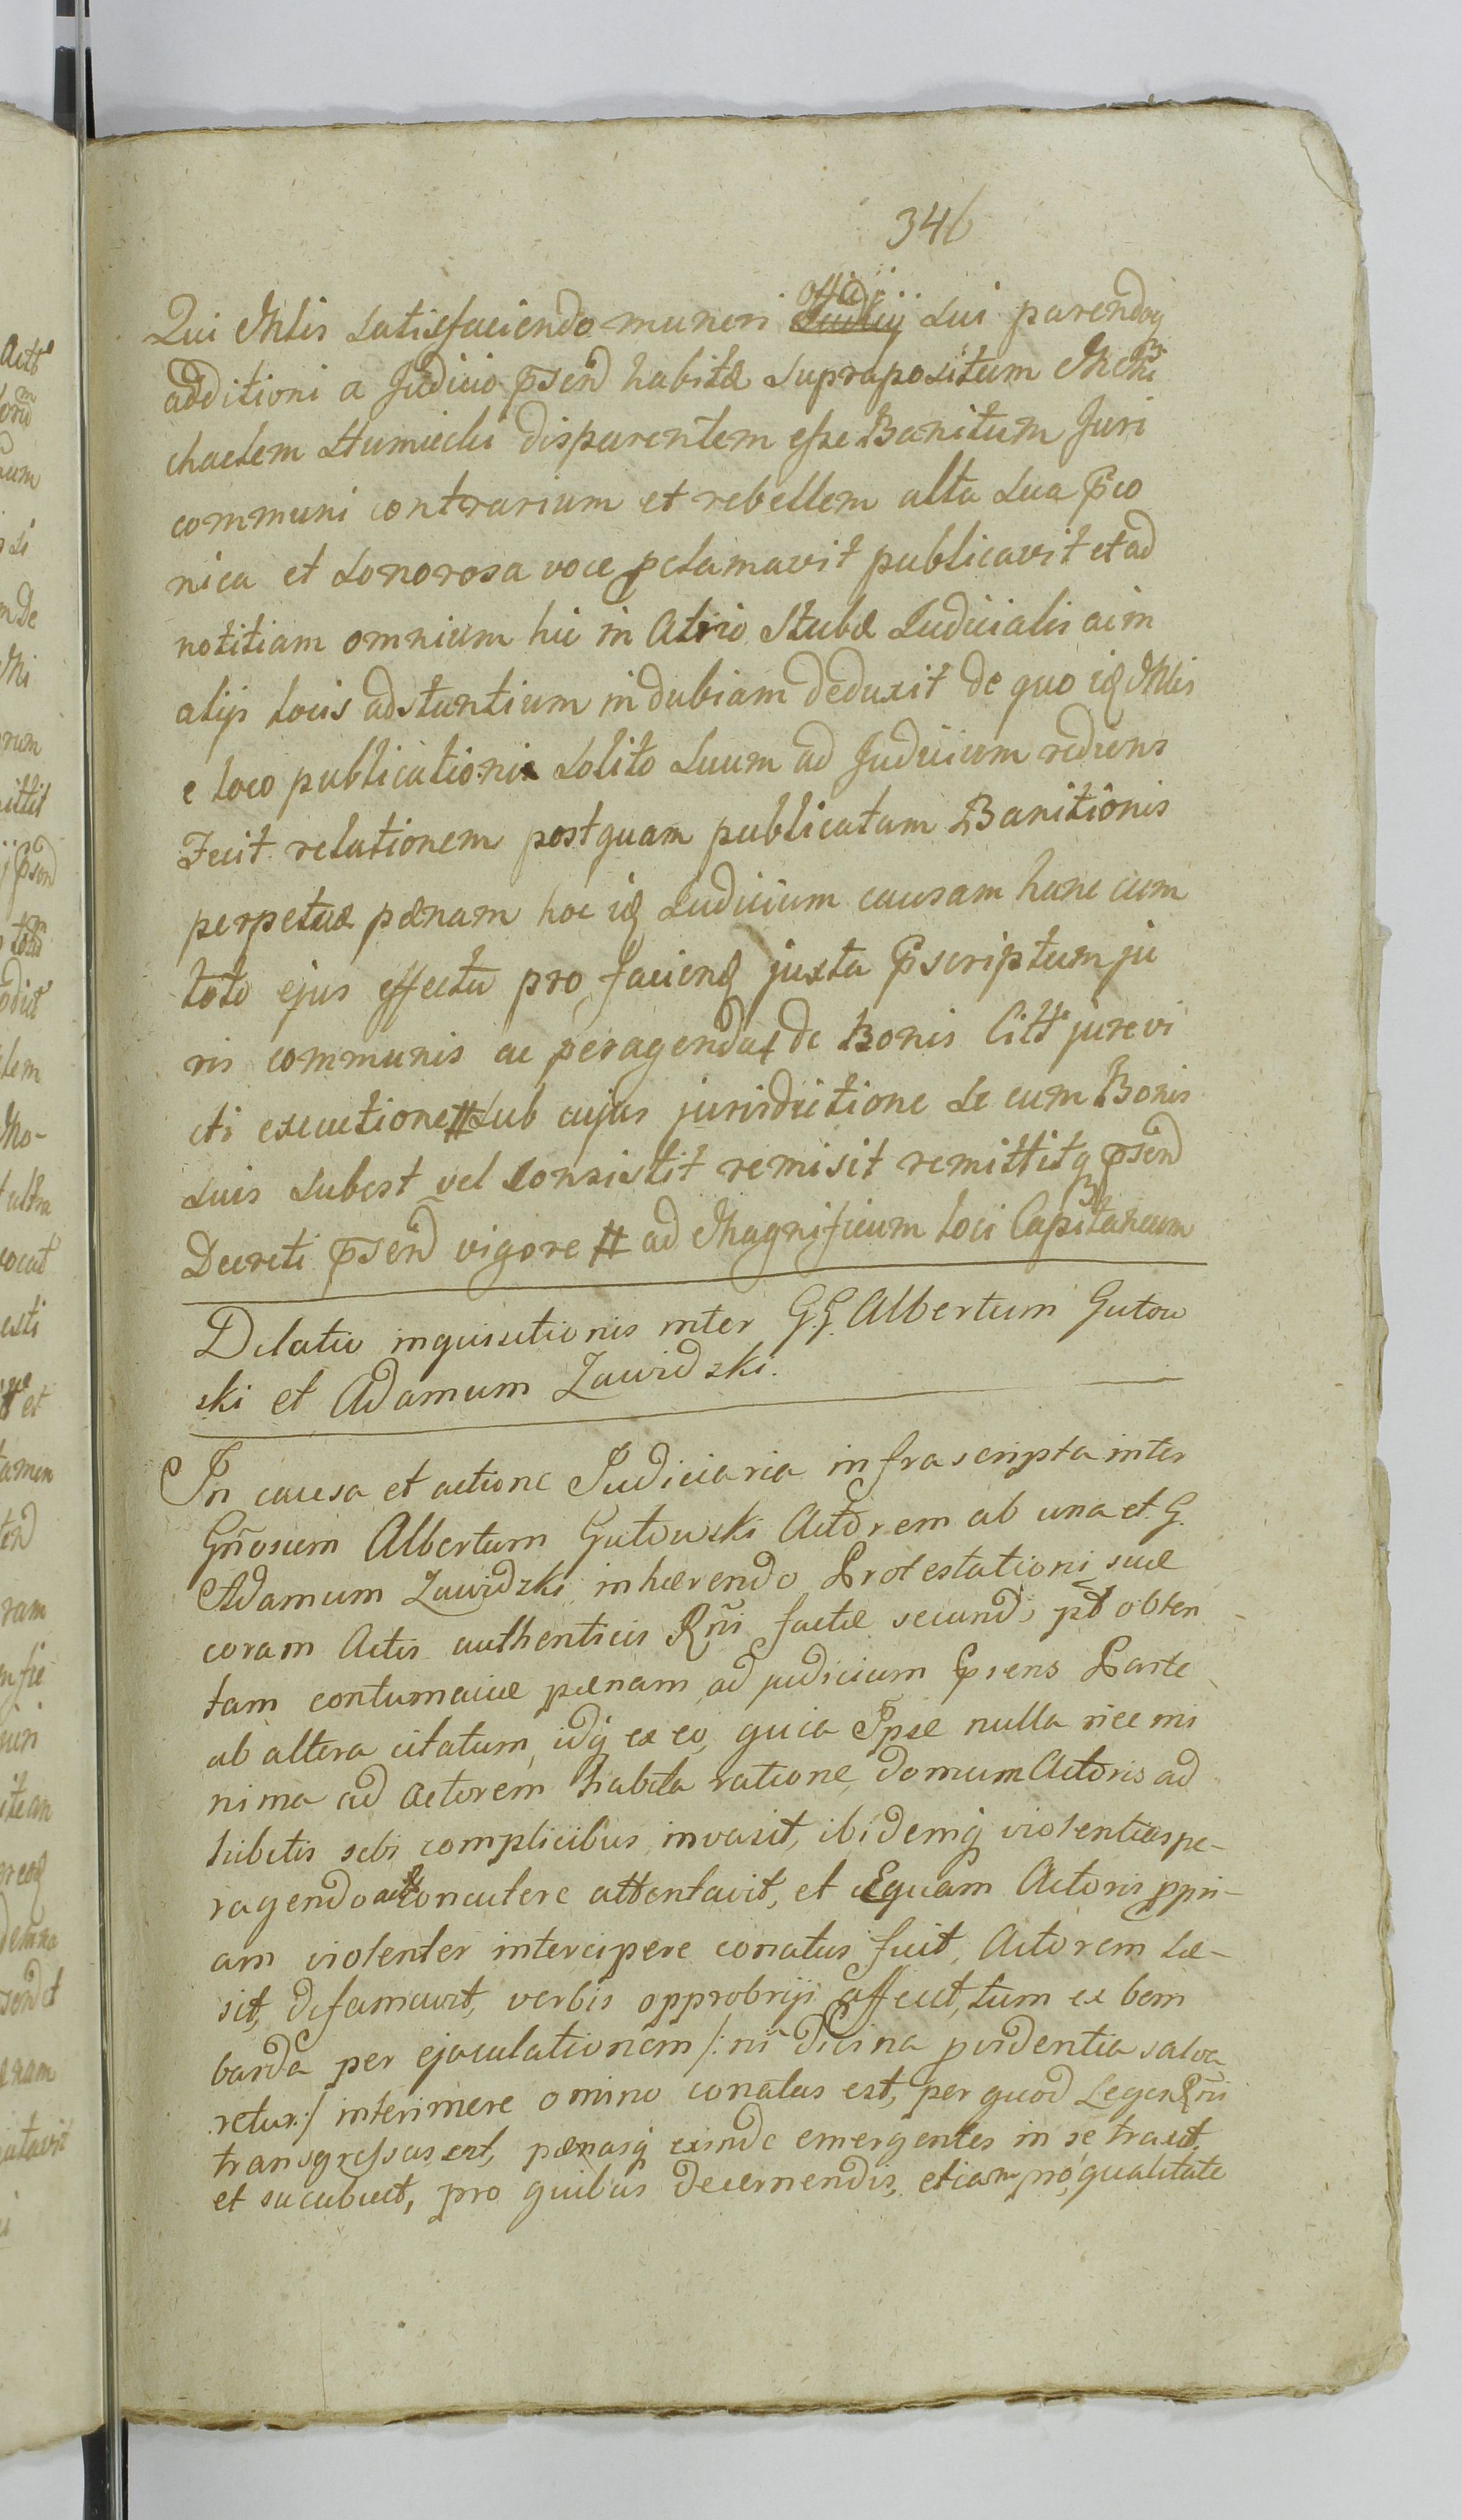 346
Qui Mtlis satisfaciendo muneri officij sui parendoq
additioni a Judicio p̄send habitæ suprapositum Mchi
chaelem Stumiecki disparentem esse Banitum Juri
communi contrarium et rebellem alta sua p̄co
nica et sonorosa voce pclamavit publicavit et ad
notitiam omnium hic in Atrio Stubæ Judicialis ac in
alijs locis adstantium indubiam deduxit de quo iq Mtlis
e loco publicationis solito suum ad Judicium rediens
Fecit relationem postquam publicatam Banitionis
perpetuæ pænam hoc iq Judicium causam hanc cum
toto ejus effectu pro faciend juxta p̄scriptum ju
ris communis ac peragenda de Bonis Citti jure vi
cti executione # sub cujus jurisdictione se cum Bonis
suis subest vel consistit remisit remittitq p̄send
Decreti p̄send vigore # ad Magnificum loci Capitaneum
Dilatio inquisitionis inter G.G. Albertum Gutow
ski et Adamum Zawidzki.
In causa et actione Judiciaria infrascripta inter
Gn̄osum Albertum Gutowski Actorem ab una et G.
Adamum Zawidzki inhærendo Protestationi suæ
coram Actis authenticis Rn̄i factæ secund, pt obten
tam contumaciæ pænam ad judicium p̄sens Parte
ab altera citatum, idq ex eo, quia Ipse nulla nec mi
nima ad Actorem habita ratione domum Actoris ad
hibitis sibi complicibus invasit, ibidemq violentias pe-
ragendo concutere attentavit, et Equam Actoris ppri-
am violenter intercipere conatus fuit, Actorem læ-
sit, defamavit, verbis opprobriji affecit, tum ex bom
barda per ejaculationem /: ni Divina pvidentia salva
retur :/ interimere omino conatus est, per quod Leges Rn̄i
transgressus est, pænasq exinde emergentes in se traxit,
et sucubuit, pro quibus decernendis, etiam pro qualitate